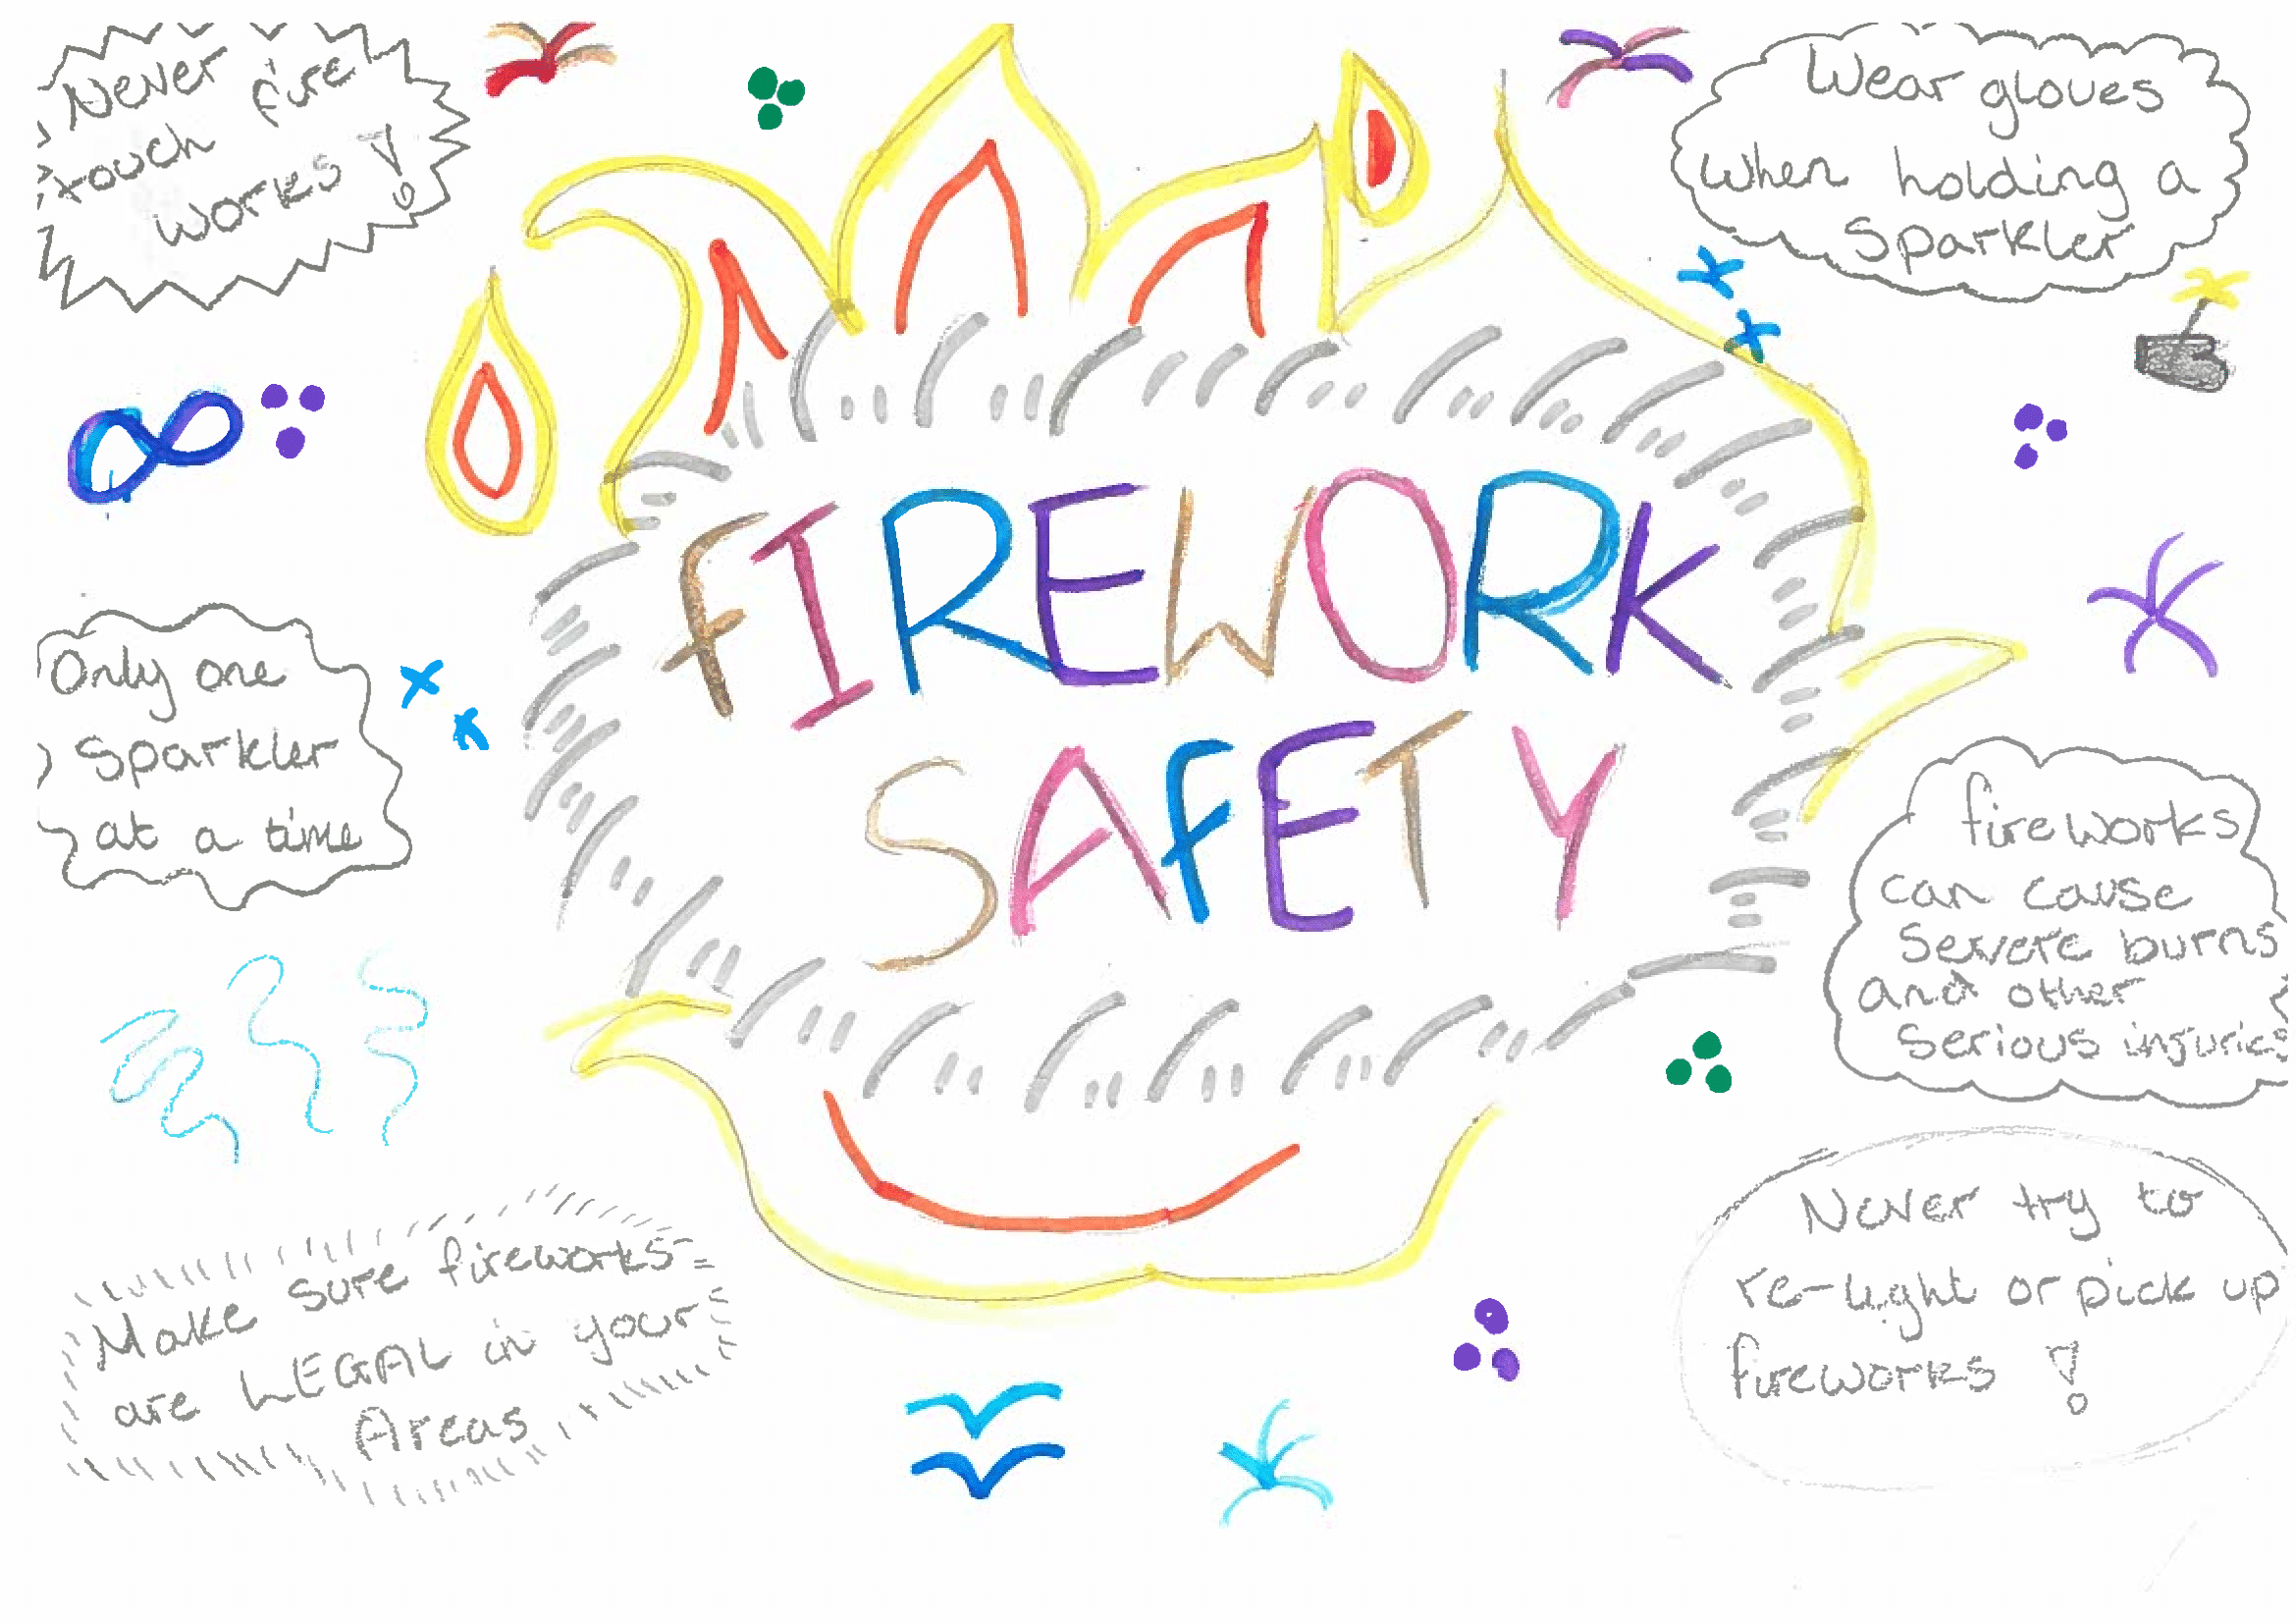 Never fire
touch
works!
Wear gloves
when holding a
Sparkler
FIREWORK
SAFETY
Only one
Sparkler
at a time
fireworks
can cause
Severe burns
and other
Serious injuries
Make sure fireworks
are LEGAL in your
Areas
Never try to
re-light or pick up
fireworks !